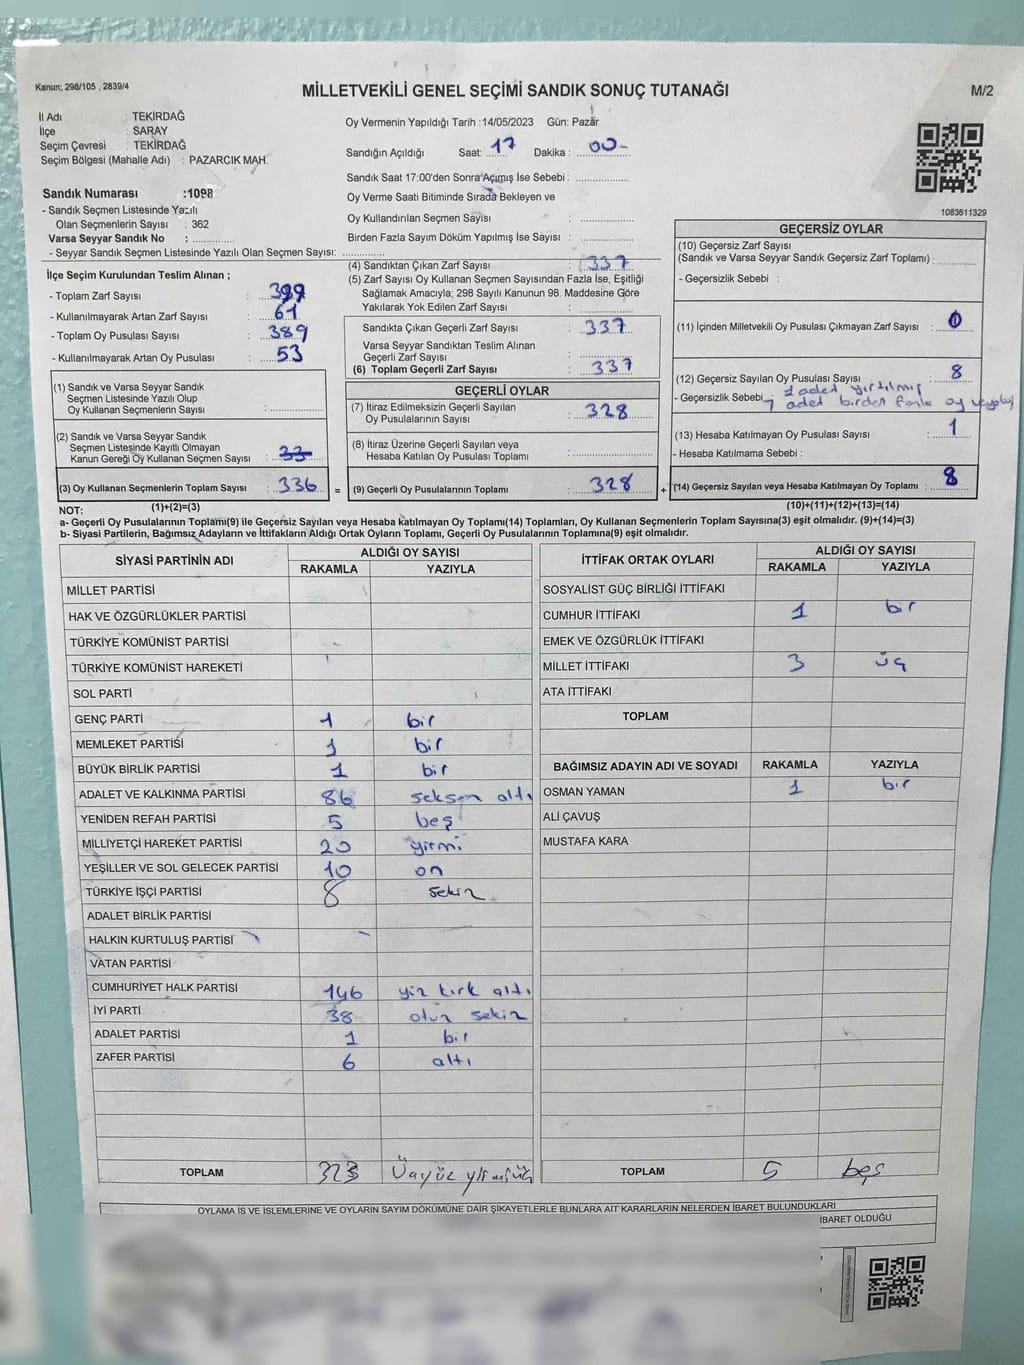 Kanun; 298/105 , 2839/4
MİLLETVEKİLİ GENEL SEÇİMİ SANDIK SONUÇ TUTANAĞI
M/2
İl Adı : TEKİRDAĞ
İlçe : SARAY
Seçim Çevresi : TEKİRDAĞ
Seçim Bölgesi (Mahalle Adı) : PAZARCIK MAH.
Sandık Numarası :1098
- Sandık Seçmen Listesinde Yazılı
Olan Seçmenlerin Sayısı : 362
Varsa Seyyar Sandık No : ............
- Seyyar Sandık Seçmen Listesinde Yazılı Olan Seçmen Sayısı: ............
Oy Vermenin Yapıldığı Tarih :14/05/2023 Gün: Pazar
Sandığın Açıldığı Saat: 17 Dakika : 00-
Sandık Saat 17:00'den Sonra Açımış İse Sebebi : ............
Oy Verme Saati Bitiminde Sırada Bekleyen ve
Oy Kullandırılan Seçmen Sayısı : ............
Birden Fazla Sayım Döküm Yapılmış İse Sayısı : ............
1083611329
İlçe Seçim Kurulundan Teslim Alınan ;
- Toplam Zarf Sayısı : 399
- Kullanılmayarak Artan Zarf Sayısı : 61
- Toplam Oy Pusulası Sayısı : 389
- Kullanılmayarak Artan Oy Pusulası : 53
(1) Sandık ve Varsa Seyyar Sandık
Seçmen Listesinde Yazılı Olup
Oy Kullanan Seçmenlerin Sayısı : ............
(2) Sandık ve Varsa Seyyar Sandık
Seçmen Listesinde Kayıtlı Olmayan
Kanun Gereği Oy Kullanan Seçmen Sayısı : 33
(3) Oy Kullanan Seçmenlerin Toplam Sayısı : 336 =
(1)+(2)=(3)
(4) Sandıktan Çıkan Zarf Sayısı : 337
(5) Zarf Sayısı Oy Kullanan Seçmen Sayısından Fazla İse, Eşitliği
Sağlamak Amacıyla; 298 Sayılı Kanunun 98. Maddesine Göre
Yakılarak Yok Edilen Zarf Sayısı : ............
Sandıkta Çıkan Geçerli Zarf Sayısı : 337
Varsa Seyyar Sandıktan Teslim Alınan
Geçerli Zarf Sayısı : ............
(6) Toplam Geçerli Zarf Sayısı : 337
GEÇERLİ OYLAR
(7) İtiraz Edilmeksizin Geçerli Sayılan
Oy Pusulalarının Sayısı : 328
(8) İtiraz Üzerine Geçerli Sayılan veya
Hesaba Katılan Oy Pusulası Toplamı : ............
(9) Geçerli Oy Pusulalarının Toplamı : 328 +
GEÇERSİZ OYLAR
(10) Geçersiz Zarf Sayısı
(Sandık ve Varsa Seyyar Sandık Geçersiz Zarf Toplamı) : ............
- Geçersizlik Sebebi :
(11) İçinden Milletvekili Oy Pusulası Çıkmayan Zarf Sayısı : 0
(12) Geçersiz Sayılan Oy Pusulası Sayısı : 8
- Geçersizlik Sebebi 1 adet yırtılmış
7 adet birden fazla oy
(13) Hesaba Katılmayan Oy Pusulası Sayısı : 1
- Hesaba Katılmama Sebebi :
(14) Geçersiz Sayılan veya Hesaba Katılmayan Oy Toplamı : 8
(10)+(11)+(12)+(13)=(14)
NOT:
a- Geçerli Oy Pusulalarının Toplamı(9) ile Geçersiz Sayılan veya Hesaba katılmayan Oy Toplamı(14) Toplamları, Oy Kullanan Seçmenlerin Toplam Sayısına(3) eşit olmalıdır. (9)+(14)=(3)
b- Siyasi Partilerin, Bağımsız Adayların ve İttifakların Aldığı Ortak Oyların Toplamı, Geçerli Oy Pusulalarının Toplamına(9) eşit olmalıdır.
SİYASİ PARTİNİN ADI ALDIĞI OY SAYISI
RAKAMLA YAZIYLA
MİLLET PARTİSİ
HAK VE ÖZGÜRLÜKLER PARTİSİ
TÜRKİYE KOMÜNİST PARTİSİ
TÜRKİYE KOMÜNİST HAREKETİ
SOL PARTİ
GENÇ PARTİ 1 bir
MEMLEKET PARTİSİ 1 bir
BÜYÜK BİRLİK PARTİSİ 1 bir
ADALET VE KALKINMA PARTİSİ 86 seksen altı
YENİDEN REFAH PARTİSİ 5 beş
MİLLİYETÇİ HAREKET PARTİSİ 20 yirmi
YEŞİLLER VE SOL GELECEK PARTİSİ 10 on
TÜRKİYE İŞÇİ PARTİSİ 8 sekiz
ADALET BİRLİK PARTİSİ
HALKIN KURTULUŞ PARTİSİ
VATAN PARTİSİ
CUMHURİYET HALK PARTİSİ 146 yüz kırk altı
İYİ PARTİ 38 otuz sekiz
ADALET PARTİSİ 1 bir
ZAFER PARTİSİ 6 altı
TOPLAM 323
İTTİFAK ORTAK OYLARI ALDIĞI OY SAYISI
RAKAMLA YAZIYLA
SOSYALİST GÜÇ BİRLİĞİ İTTİFAKI
CUMHUR İTTİFAKI 1 bir
EMEK VE ÖZGÜRLÜK İTTİFAKI
MİLLET İTTİFAKI 3 üç
ATA İTTİFAKI
TOPLAM
BAĞIMSIZ ADAYIN ADI VE SOYADI RAKAMLA YAZIYLA
OSMAN YAMAN 1 bir
ALİ ÇAVUŞ
MUSTAFA KARA
TOPLAM 5 beş
OYLAMA İŞ VE İŞLEMLERİNE VE OYLARIN SAYIM DÖKÜMÜNE DAİR ŞİKAYETLERLE BUNLARA AİT KARARLARIN NELERDEN İBARET BULUNDUKLARI
İBARET OLDUĞU